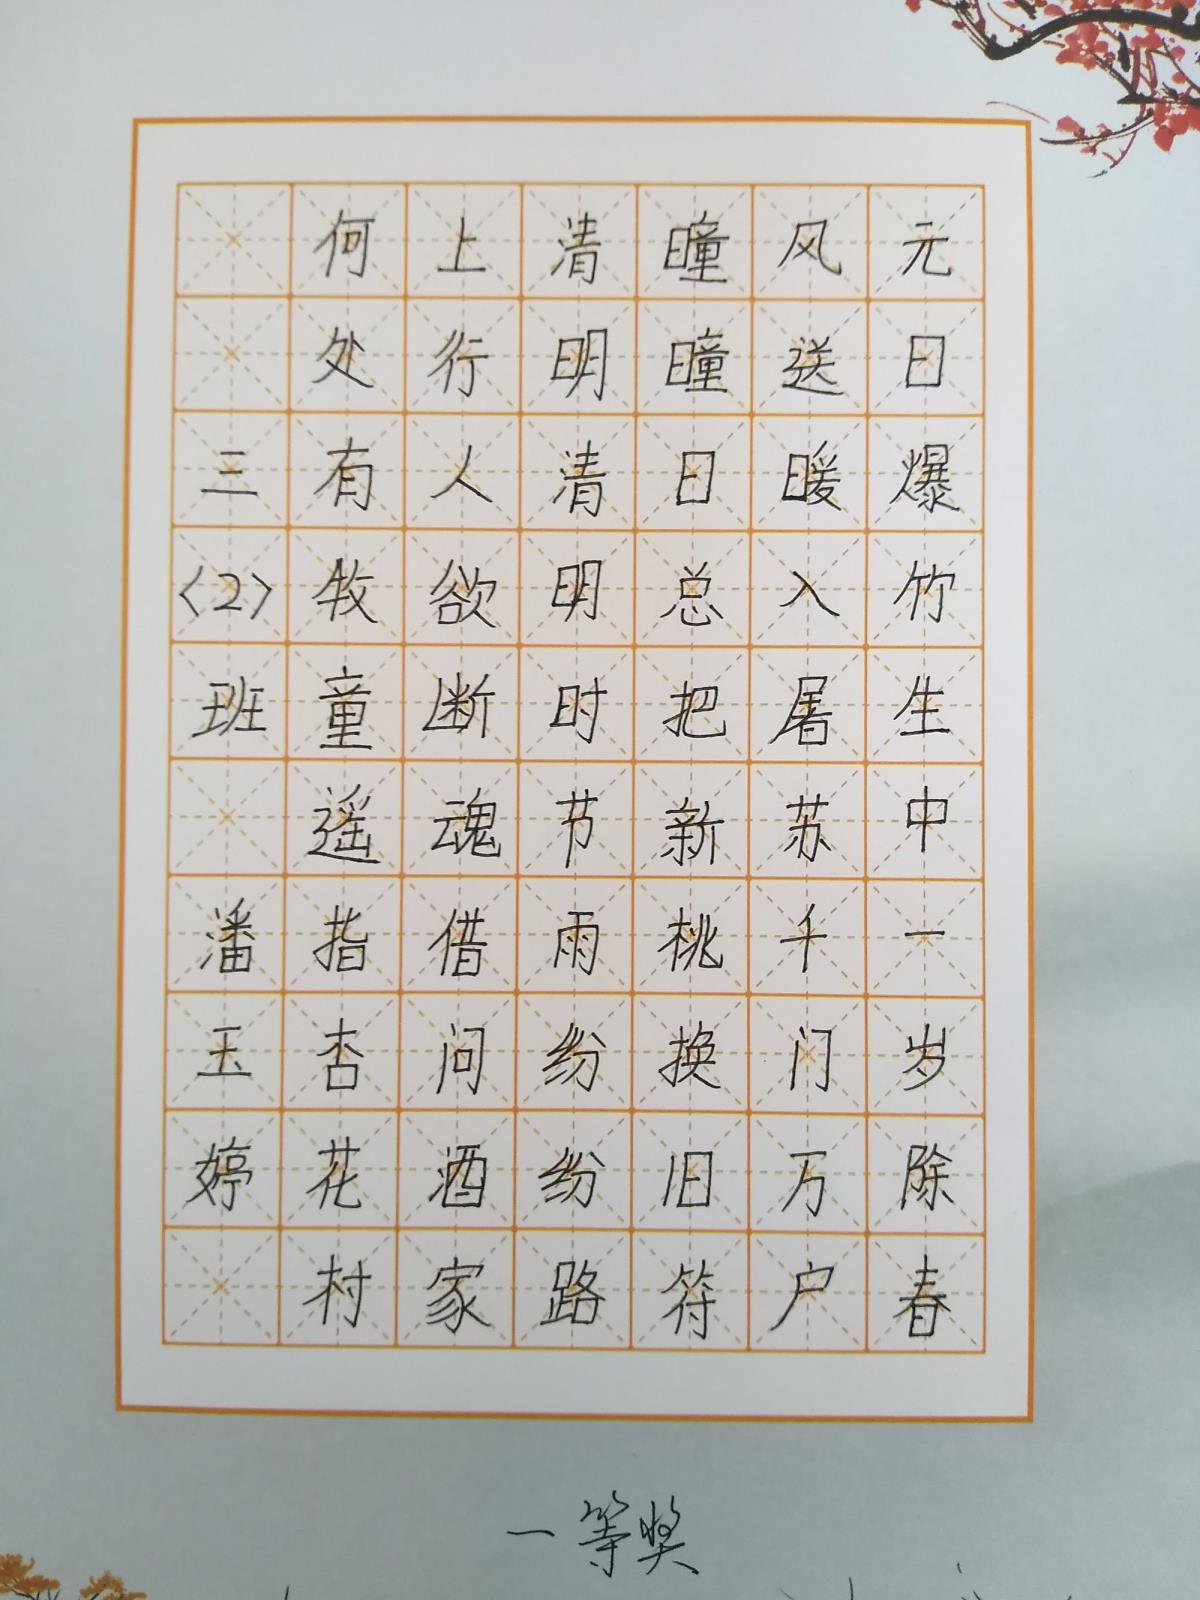 元日爆竹生中一岁除春
风送暖入屠苏千门万户
曈曈日总把新桃换旧符
清明清明时节雨纷纷路
上行人欲断魂借问酒家
何处有牧童遥指杏花村
三〈2〉班 潘玉婷
一等奖